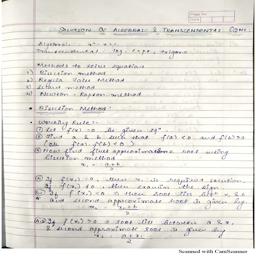 SOLUTION OF ALGEBRAIC & TRANSCENDENTAL EQNS.
Algebraic:
Transcendental: log, expo, trigono
Methods to solve equations
1) Bisection method
2) Regula Falsi Method
3) Secant method
4) Newton - Rapson method
• Bisection Method:
Working Rule:-
① Let f(x) = 0 be given eqn
② Find a & b such that f(a) < 0 and f(b) > 0
(or f(a) f(b) < 0)
③ Now find first approximation root using
Bisection method
x₁ = a+b/2
④ If f(x₁) = 0, then x₁ is required solution.
If f(x₁) ≠ 0, then examine the sign
If f(x₁) < 0 then root lies x₁ & b
and second approximate root is given by
x₂ = x₁+b/2
If f(x₁) > 0 root lies between a & x₁
& second approximate root is given by
x₂ = a+x₁/2
Scanned with CamScanner